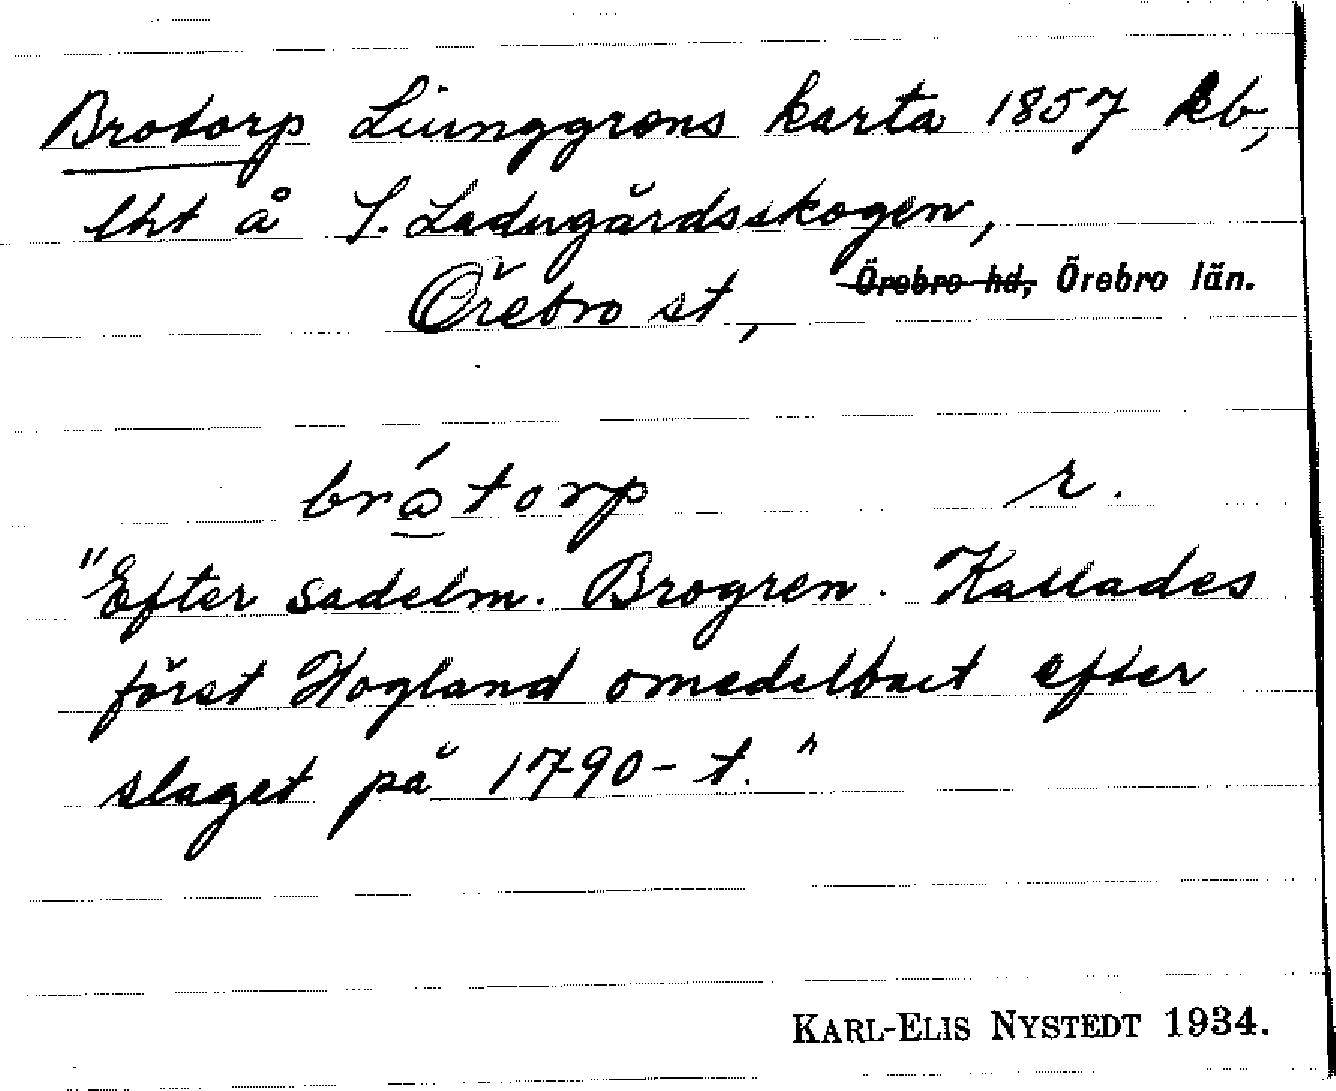 Brotorp Liunggrens karta 1857 kb,
lht å S. Ladugårdsskogen,
Örebro st, Örebro hd, Örebro län.
brátorp r.
"Efter sadelm. Brogren. Kallades
först Hogland omedelbart efter
slaget på 1790-t."
KARL-ELIS NYSTEDT 1934.